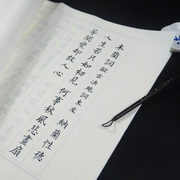 木蘭詞擬古決絕詞柬友 納蘭性德
人生若只如初見 何事秋風悲畫扇
等閒變卻故人心